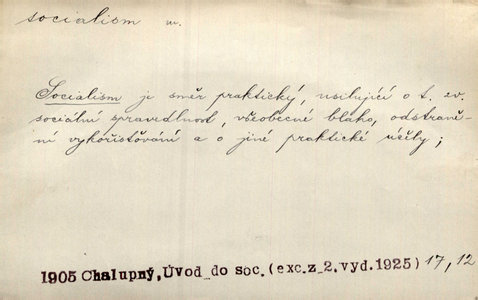 socialism m.
Socialism je směr praktický, usilující o t. zv.
sociální spravedlnost, všeobecné blaho, odstraně-
ní vykořisťování a o jiné praktické účely;
1905 Chalupný, Úvod do soc. (exc. z 2. vyd. 1925) 17, 12